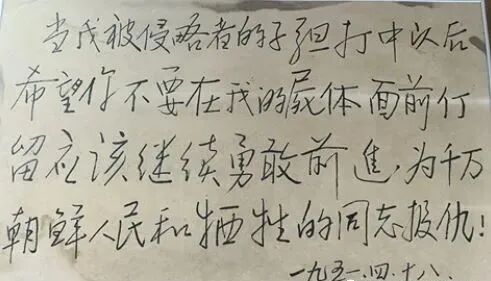 当我被侵略者的子弹打中以后
希望你不要在我的屍体面前停
留应该继续勇敢前進,为千万
朝鲜人民和牺牲的同志报仇!
一九五一.四.十八.